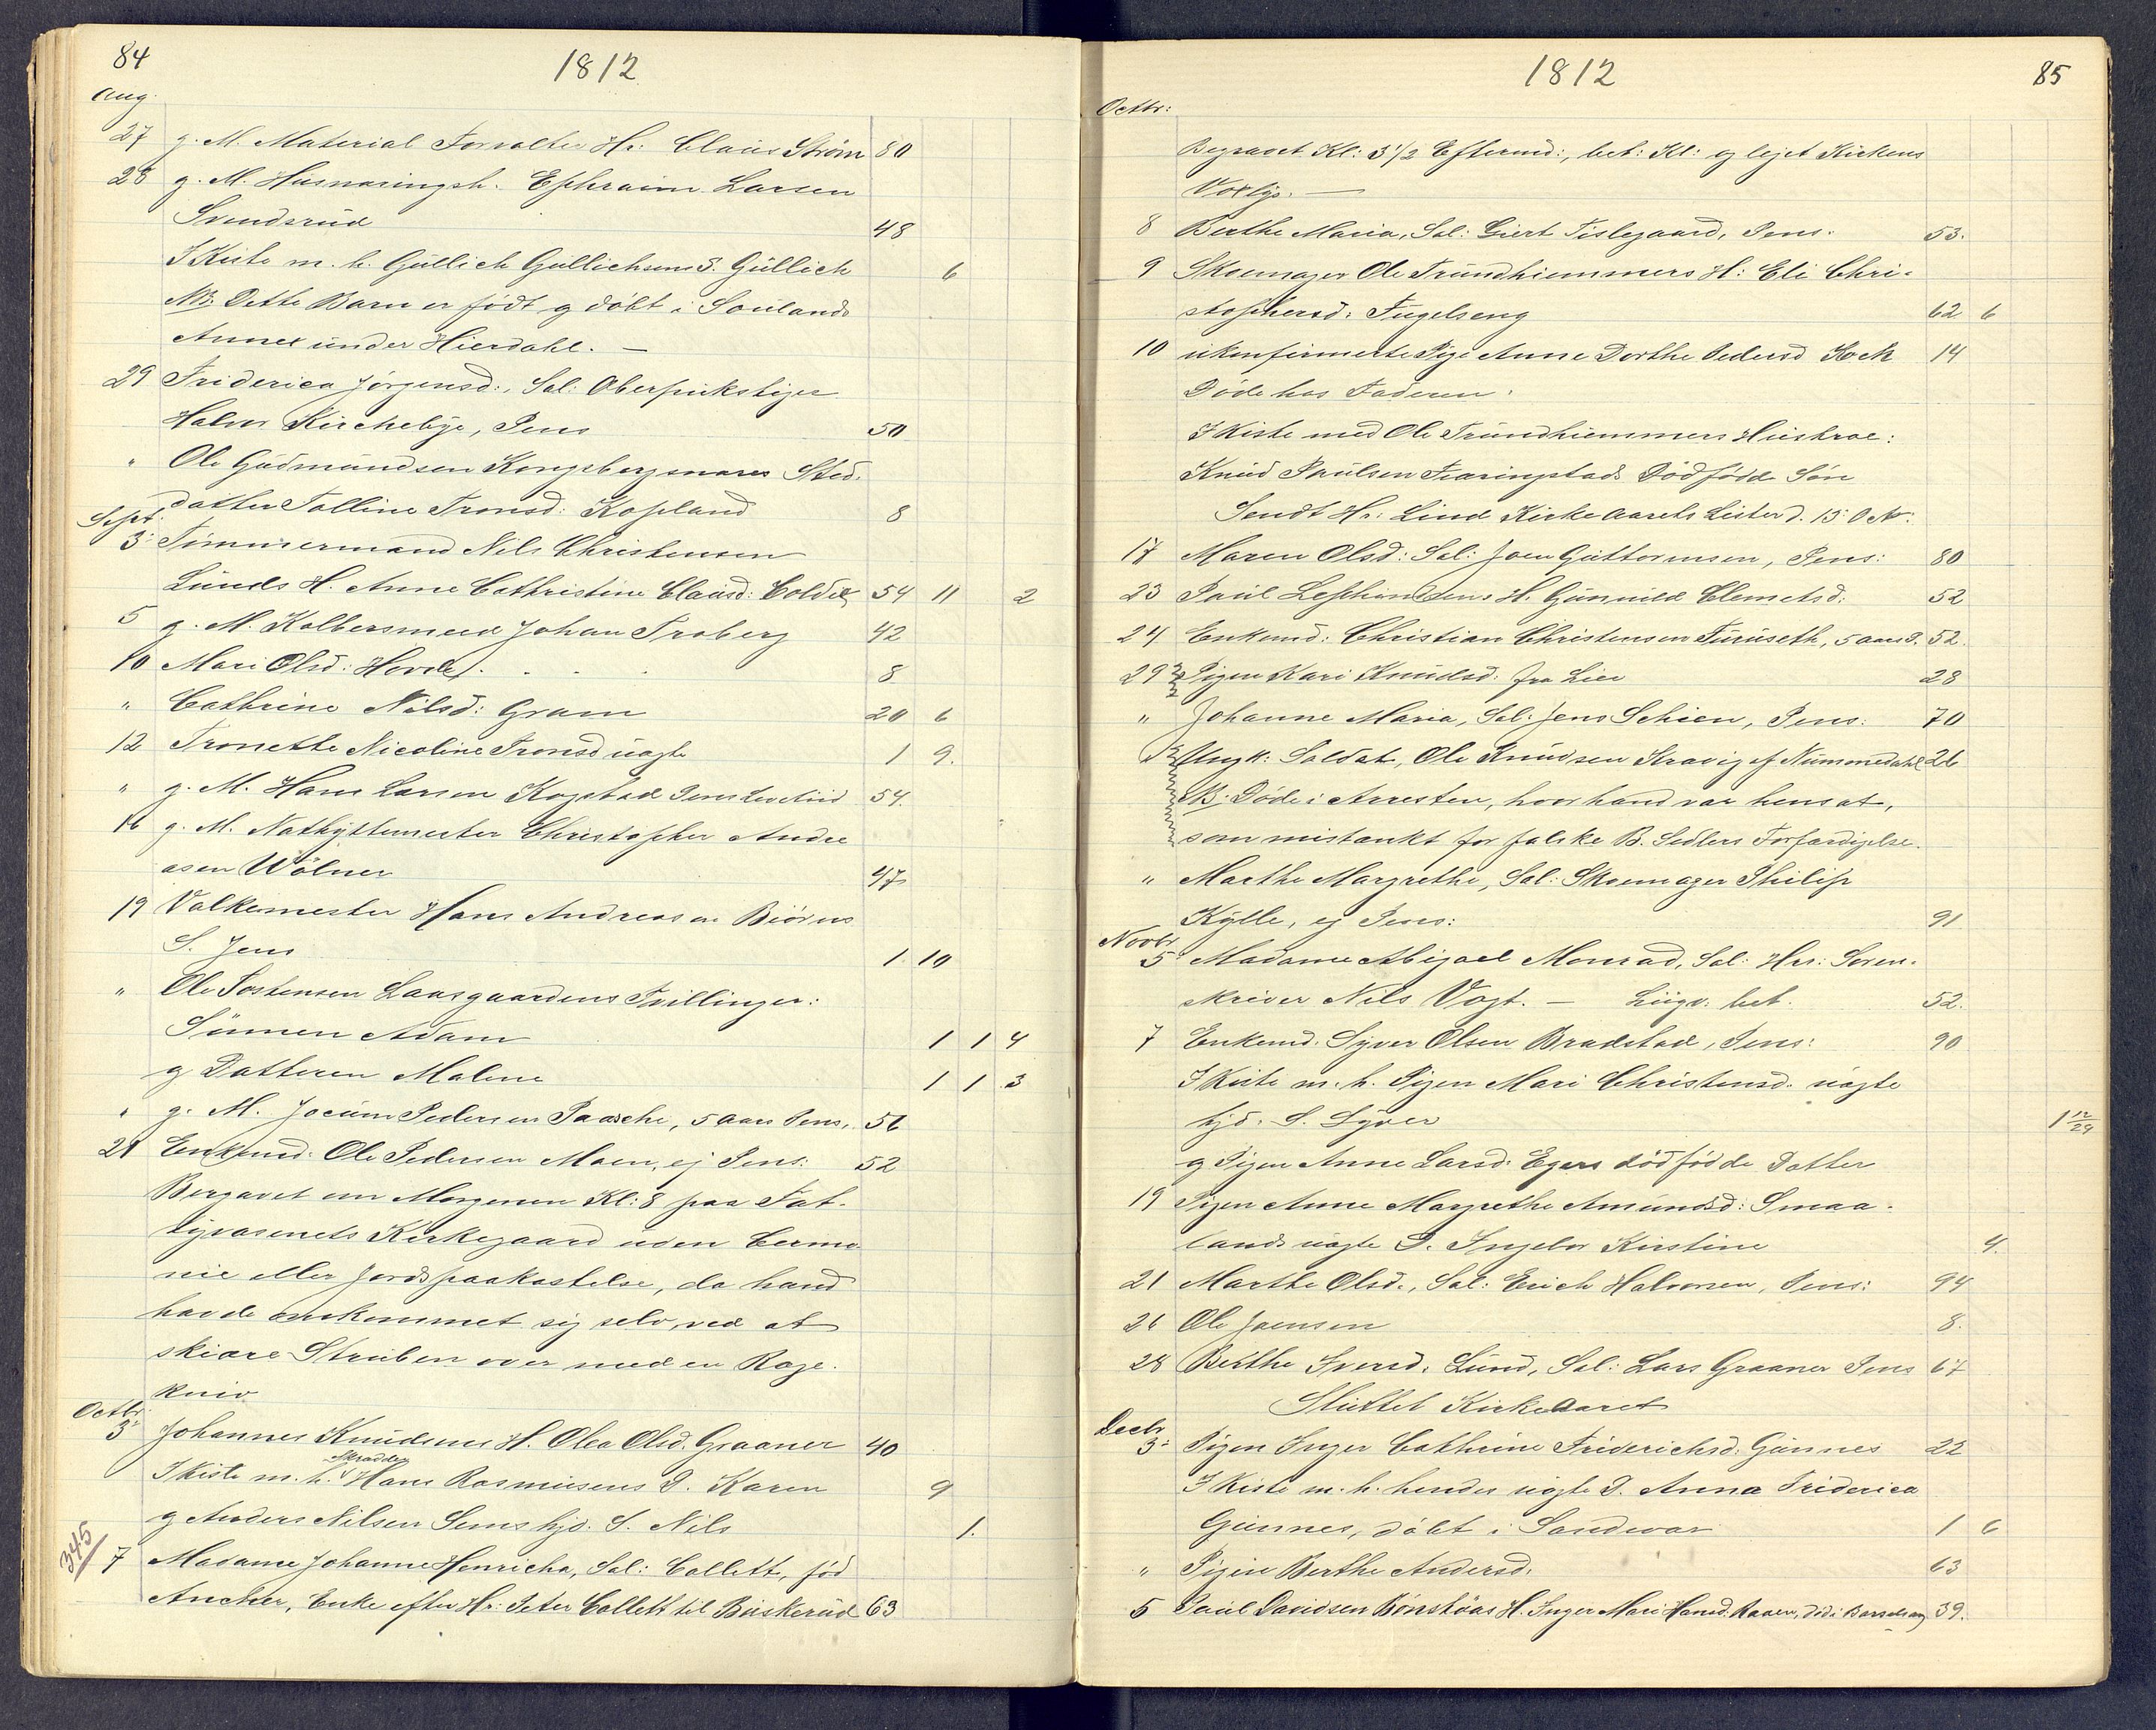 84
1812
Aug.
27 g. M. Material Forvalter Hr: Claus Strøm 80
28 g. M. Husnæringsh. Ephraim Larsen
Svendsrud 48
I Kiste m. h. Gullich Gullichsens S. Gullich 6
NB. Dette Barn er født og döbt i Souland
Annex under Hierdahl. —
29 Friderica Jörgensd:, Sal: Oberstiger
Halvor Kirchebye, Pens 50
" Ole Gudmundsen Kongsbergmoes Sted-
datter Talline Tronsd: Kopland 8
Sept:
3: Tömmermand Nils Christensen
Lunds H. Anne Cathristine Clausd: Coldix 54 11 2
5 g. M. Kolbersmed Johan Froberg 42
10 Mari Olsd: Hovde . . . 8
" Cathrine Nilsd: Gram 20 6
12 Tronette Nicoline Tronsd uægte 1 9.
" g. M. Hans Larsen Kopstad 54.
16 g. M. Nathyttemester Christopher Andre
asen Wölner 47
19 Valkemester Hans Andreasen Biörns
S. Jens 1 10
" Ole Tostensen Laasgaardens Tvillinger:
Sönnen Adam 1 1 4
g Datteren Malene 1 1 3
" g. M. Jocum Pedersen Paasche, 5 aars Pens. 56
21 Enkemd: Ole Pedersen Moen, ej Pens: 52
Begravet om Morgenen Kl: 8 paa Fat-
tigvæsenets Kirkegaard uden Cermo-
nie eller Jordspaakastelse, da hand
havde omkommet sig selv, ved at
skiære Struben over med en Rage-
kniv
Octbr:
3: Johannes Knudsens H. Olea Olsd. Graaner 40
I Kiste m. h. Skrædder Hans Rasmusens D. Karen 9
g Anders Nilsen Sems hjd. S. Nils 1.
345
7 Madame Johanne Henricha, Sal: Collett, fød
Ancher, Enke efter Hr: Peter Collett til Buskerud 63
1812
85
Octbr:
Begravet Kl: 3 1/2 Eftermd:, bet: Kl: og lejet Kirkens
Voxlys. —
8 Berthe Maria, Sal: Giert Tislegaard, Pens. 53.
9 Skoemager Ole Trundhiemmers H: Eli Chri-
stophersd: Fugelseng 62 6
10 ukonfirmerte Pige Anne Dorthe Pedersd Sock 14
Döde hos Faderen.
I Kiste med Ole Trundhiemmers Hustroe:
Knud Paulsen Tæringstads Dödfödde Sön
Sendt Hr: Lind Kirkeaarets Lister d. 15: Oct:
17 Maren Olsd: Sal: Joen Guttormsen, Pens: 80
23 Paul H. Gunnild Clemetsd. 52
24 Enkemd: Christian Christensen Furuseth, 5 aars P. 52.
29 Pigen Kari Knudsd. fra Lier 28
" Johanne Maria, Sal: Jens Schien, Pens: 70
" Ungk: Soldat, Ole Knudsen Stravig af Nummedahl 26
NB. Döde i Arresten, hvor hand var hensat,
som mistænkt for falske B. Sedlers Forfærdigelse.
" Marthe Margrethe, Sal: Skoemager Philip
Kylle, ej Pens: 91
Novbr
5: Madame Abigael Monrad, Sal: Hr: Soren-
skriver Nils Vogt. — Liigv: bet. 52.
7 Enkemd. Syver Olsen Bradstad, Pens: 90
I Kiste m. h. Pigen Mari Christensd. uægte
hjd. S. Syver 1 12/24
g Pigen Anne Larsd: Egers dödfödde Datter
19 Pigen Anne Margrethe Amundsd: Smaa-
lands uægte D. Ingebor Kirstine 4.
21 Marthe Olsd., Sal: Erich Halvorsen, Pens: 94
26 Ole Joensen 8.
28 Berthe Iversd. Lund, Sal: Lars Graaner Pens 67
Sluttet Kirkeaaret
Decbr
3: Pigen Inger Cathrine Friderichsd: Gunnes 22
I Kiste m. h. hendes uægte D. Anna Friderica
Gunnes, döbt i Sandsvær 1 6
" Pigen Berthe Andersd. 63
5 Paul Davidsen Bönskaas H. Inger Mari Hansd. Raaen, död i Barselseng 39.